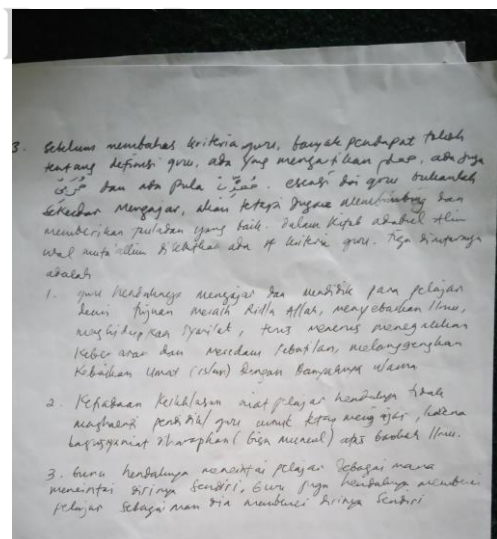 3. Sebelum membahas kriteria guru, banyak pendapat tokoh
tentang definisi guru, ada yang mengartikan ada juga
dan ada pula esensi dri guru bukanlah
sekedar mengajar, akan tetapi jugaa membimbing dan
memberikan yang baik. Dalam kitab adabul Alim
wal muta'allim disebutkan ada kriteria guru. Tiga diantaranya
adalah
1. guru hendaknya mengajar dan mendidik para pelajar
demi tujuan meraih Ridla Allah, menyebarkan Ilmu,
menghidupkan syariat, terus menerus menegakkan
kebenaran dan meredam kebatilan, melanggengkan
kebaikan Umat (islam) dengan banyaknya ulama
2. Ketiadaan keikhlasan niat pelajar hendaknya tidak
pendidik/guru untuk tetap mengajar, karena
niat diharapkan (bisa muncul) atas Ilmu.
3. Guru hendaknya mencintai pelajar sebagai mana
mencintai dirinya sendiri, Guru juga hendaknya membenci
pelajar sebagai man dia membenci dirinya sendiri